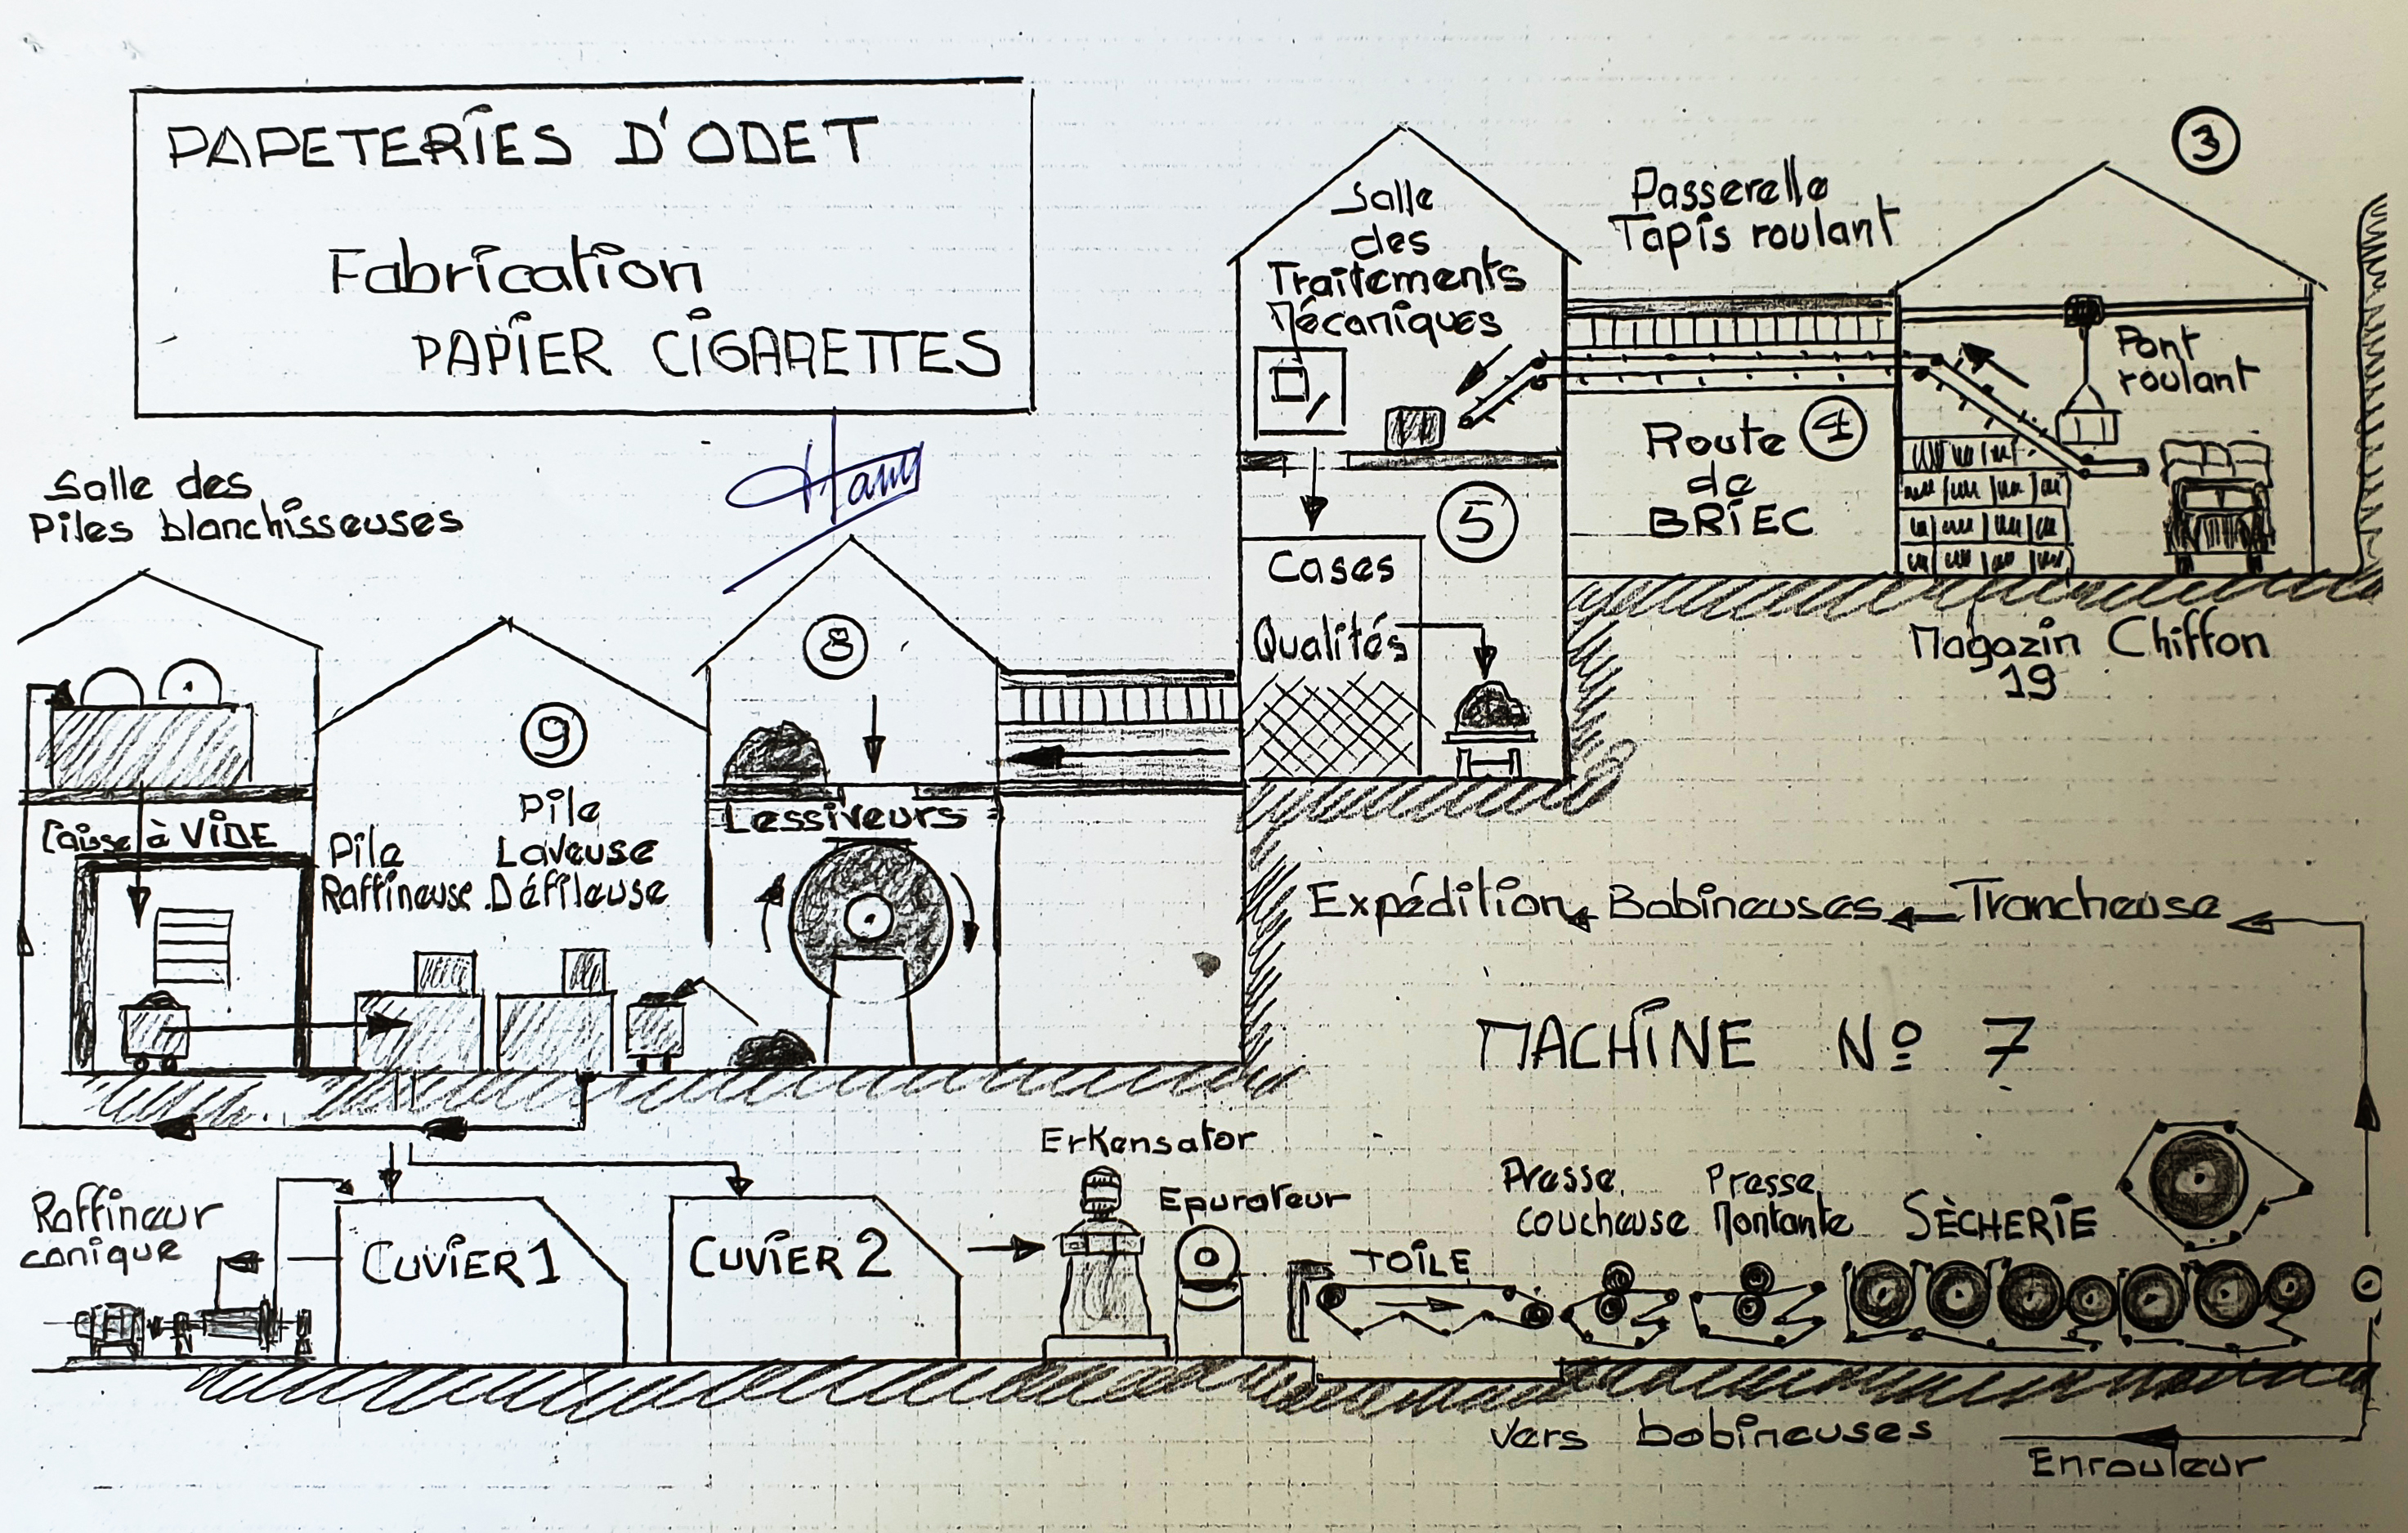 PAPETERIES D'ODET
Fabrication
PAPIER CIGARETTES
3
Salle
des
Traitements
Mécaniques
Passerelle
Tapis roulant
Pont
roulant
Route 4
de
BRIEC
5
Cases
Qualités
Magazin Chiffon
19
Salle des
Piles blanchisseuses
8
9
Pile
Laveuse
Défileuse
Pile
Raffineuse
Lessiveurs
Caisse à VIDE
Expédition Bobineuses Trancheuse
MACHINE No 7
Erkensator
Epurateur
Presse
coucheuse
Presse
Montante
SÈCHERIE
Raffineur
conique
CUVIER 1
CUVIER 2
TOILE
vers bobineuses
Enrouleur